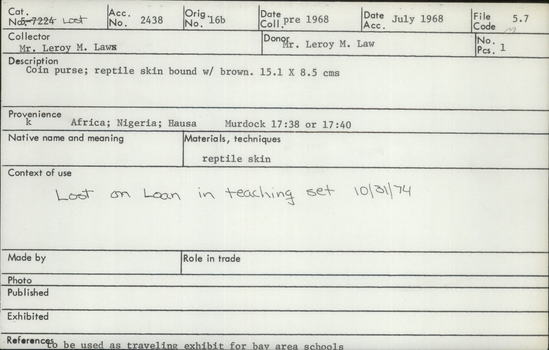 Cat. No. 5-7224 Lost Acc. No. 2438 Orig. No. 16b Date Coll. pre 1968 Date Acc. July 1968 File Code 5.7
Collector Mr. Leroy M. Laws Donor Mr. Leroy M. Law No. Pcs. 1
Description
Coin purse; reptile skin bound w/ brown. 15.1 X 8.5 cms
Provenience
k Africa; Nigeria; Hausa Murdock 17:38 or 17:40
Native name and meaning Materials, techniques
reptile skin
Context of use
Lost on Loan in teaching set 10/31/74
Made by Role in trade
Photo
Published
Exhibited
References to be used as traveling exhibit for bay area schools